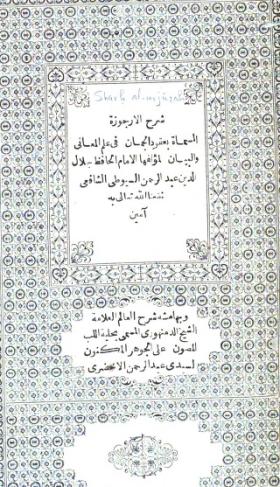 Sharh al-urjūzah
شرح الارجوزة
المسماة بعقود الجمان فى علم المعانى
والبيان لمؤلفها الامام الحافظ جلال
الدين عبد الرحمن السيوطى الشافعى
نفعنا الله تعالى به
آمين
وبهامشه شرح العالم العلامة
الشيخ الدمنهورى المسمى بحلية اللب
المصون على الجوهر المكنون
لسيدى عبد الرحمن الاخضرى